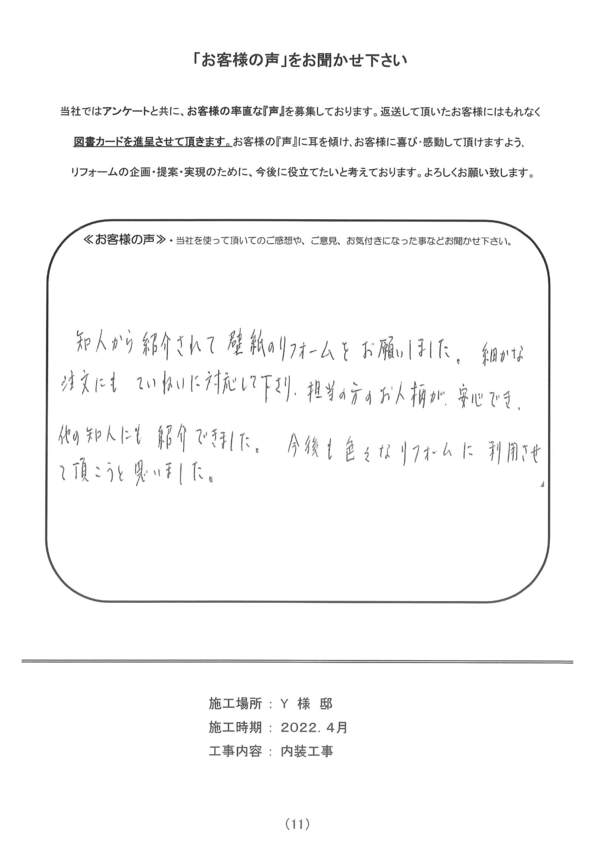 「お客様の声」をお聞かせ下さい
当社ではアンケートと共に、お客様の率直な『声』を募集しております。返送して頂いたお客様にはもれなく
図書カードを進呈させて頂きます。お客様の『声』に耳を傾け、お客様に喜び・感動して頂けますよう、
リフォームの企画・提案・実現のために、今後に役立てたいと考えております。よろしくお願い致します。
≪お客様の声≫・当社を使って頂いてのご感想や、ご意見、お気付きになった事などお聞かせ下さい。
知人から紹介されて壁紙のリフォームをお願いしました。細かな
注文にもていねいに対応して下さり、担当の方のお人柄が、安心でき、
他の知人にも紹介できました。今後も色々なリフォームに利用させ
て頂こうと思いました。
施工場所：Y 様 邸
施工時期：2022.4月
工事内容：内装工事
（11）